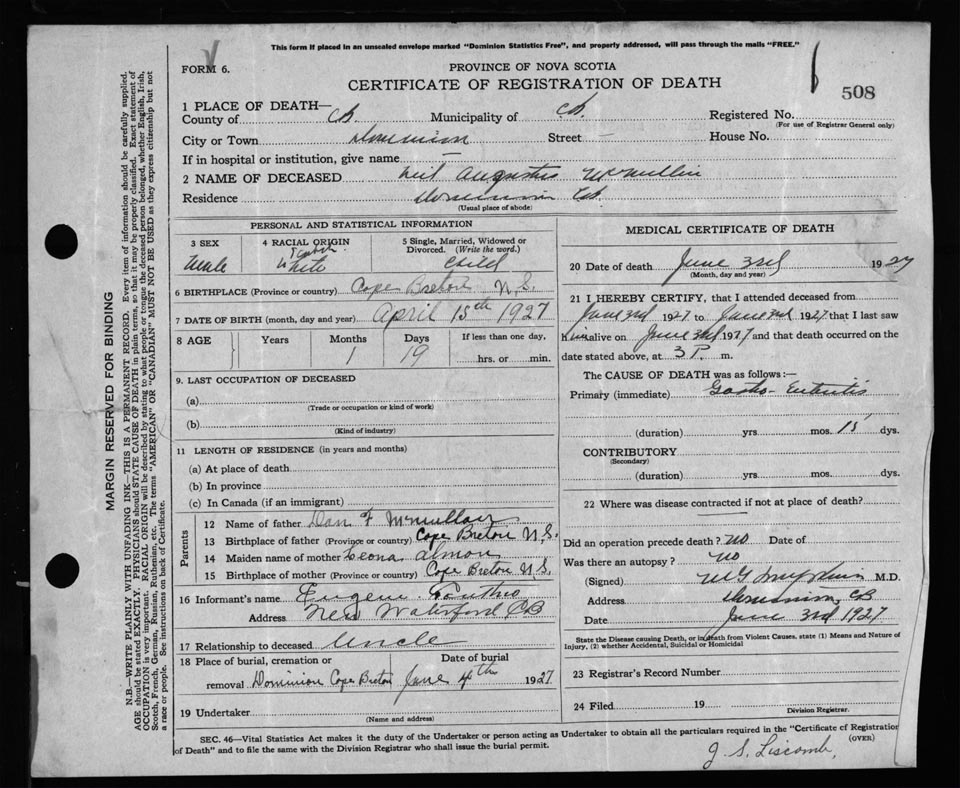 This form if placed in an unsealed envelope marked "Dominion Statistics Free", and properly addressed, will pass through the mails "FREE."
FORM 6.
PROVINCE OF NOVA SCOTIA
CERTIFICATE OF REGISTRATION OF DEATH
508
1 PLACE OF DEATH—
County of CB Municipality of CB Registered No.
(For use of Registrar General only)
City or Town Dominion Street — House No.
If in hospital or institution, give name —
2 NAME OF DECEASED Neil Augustus McMullin
Residence Dominion CB
(Usual place of abode)
PERSONAL AND STATISTICAL INFORMATION
3 SEX 4 RACIAL ORIGIN 5 Single, Married, Widowed or Divorced. (Write the word.)
Male White Child
6 BIRTHPLACE (Province or country) Cape Breton N.S.
7 DATE OF BIRTH (month, day and year) April 15th 1927
8 AGE Years Months Days If less than one day,
1 19 hrs. or min.
9. LAST OCCUPATION OF DECEASED
(a)
(Trade or occupation or kind of work)
(b)
(Kind of industry)
11 LENGTH OF RESIDENCE (in years and months)
(a) At place of death
(b) In province
(c) In Canada (if an immigrant)
Parents
12 Name of father Dan F McMullan
13 Birthplace of father (Province or country) Cape Breton N.S.
14 Maiden name of mother Leona Almon
15 Birthplace of mother (Province or country) Cape Breton N.S.
16 Informant's name Eugene
Address New Waterford CB
17 Relationship to deceased Uncle
18 Place of burial, cremation or removal Dominion Cape Breton Date of burial June 4th 1927
19 Undertaker
(Name and address)
MEDICAL CERTIFICATE OF DEATH
20 Date of death June 3rd 1927
(Month, day and year)
21 I HEREBY CERTIFY, that I attended deceased from
June 3rd 1927 to June 3rd 1927 that I last saw
him alive on June 3rd 1927 and that death occurred on the
date stated above, at 3 P. m.
The CAUSE OF DEATH was as follows:—
Primary (immediate) Gastro-Enteritis
(duration) yrs. mos. 15 dys.
CONTRIBUTORY
(Secondary)
(duration) yrs. mos. dys.
22 Where was disease contracted if not at place of death?
Did an operation precede death? No Date of
Was there an autopsy? No
(Signed) M.D.
Address Dominion CB
Date June 3rd 1927
State the Disease causing Death, or in death from Violent Causes, state (1) Means and Nature of
Injury, (2) whether Accidental, Suicidal or Homicidal
23 Registrar's Record Number
24 Filed 19
Division Registrar.
SEC. 46—Vital Statistics Act makes it the duty of the Undertaker or person acting as Undertaker to obtain all the particulars required in the "Certificate of Registration
of Death" and to file the same with the Division Registrar who shall issue the burial permit.
(OVER)
J. S. Liscomb,
MARGIN RESERVED FOR BINDING
N.B.—WRITE PLAINLY WITH UNFADING INK—THIS IS A PERMANENT RECORD. Every item of information should be carefully supplied.
AGE should be stated EXACTLY. PHYSICIANS should STATE CAUSE OF DEATH in plain terms, so that it may be properly classified. Exact statement of
OCCUPATION is very important. RACIAL ORIGIN will be described by stating to what people or tongue the deceased person belonged, whether English, Irish,
Scotch, French, German, Russian, Ruthenian, etc. The terms "AMERICAN" OR "CANADIAN" MUST NOT BE USED as they express citizenship but not
a race or people. See instructions on back of Certificate.